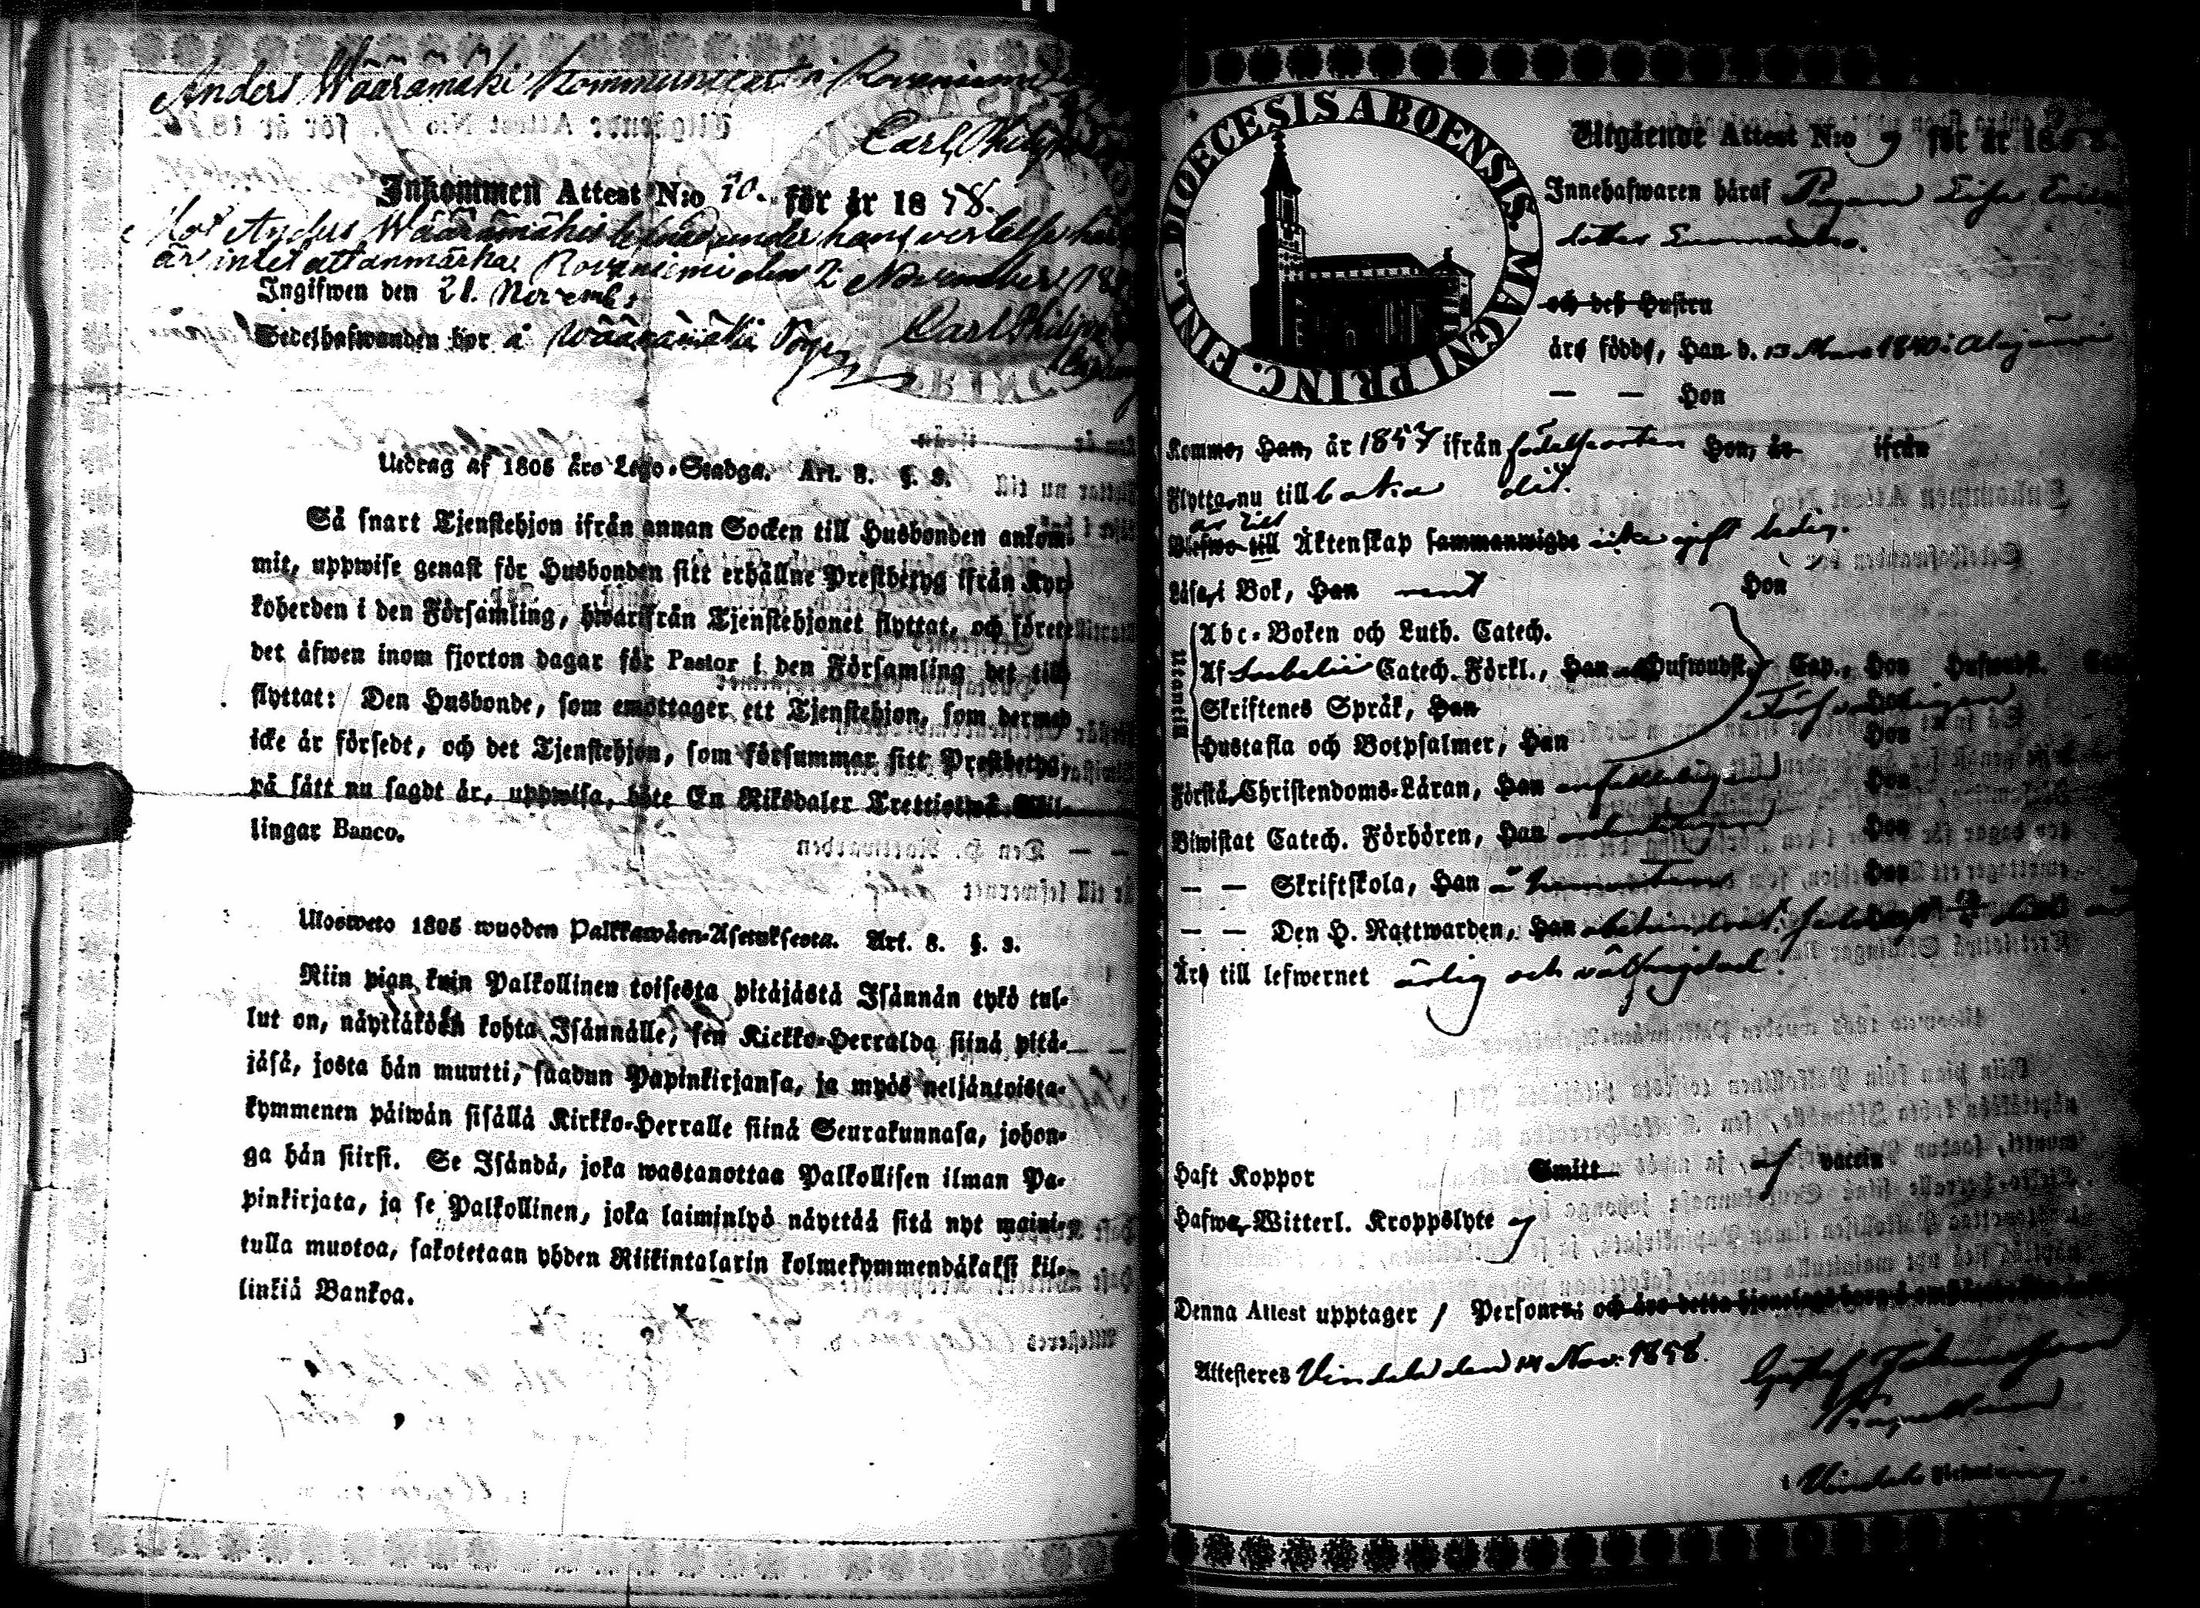 Anders Wäärämäki Kommunicerat i Rovaniemi
Carl Philip
Inkommen Attest N:o 70. för år 1858.
Mot Anders Wäärämäkis lefnad under hans vistelse här
är intet att anmärka Rovaniemi den 2 November 18
Ingifwen den 21. Novemb:
Sedelhafwanden bor å Wäärämäki
Carl Philip
Utdrag af 1805 års Lego-Stadga. Art. 8. §. 3.
Så snart Tjenstehjon ifrån annan Socken till Husbonden ankom-
mit, uppwise genast för Husbonden sitt erhållne Prestbetyg ifrån Kyr-
koherden i den Församling, hwarifrån Tjenstehjonet flyttat, och förete
det äfwen inom fjorton dagar för Pastor i den Församling det till
flyttat: Den Husbonde, som emottager ett Tjenstehjon, som dermed
icke är försedt, och det Tjenstehjon, som försummar sitt Prestbetyg,
på sätt nu sagdt är, uppwisa, böte En Riksdaler Trettiotwå Skil-
lingar Banco.
Ulosweto 1805 wuoden Palkkawäen-Asetuksesta. Art. 8. §. 3.
Niin pian kuin Palkollinen toisesta pitäjästä Isännän tykö tul-
lut on, näyttäköön kohta Isännälle, sen Kirkko-Herralda siinä pitä-
jäsä, josta hän muutti, saadun Papinkirjansa, ja myös neljäntoista-
kymmenen päiwän sisällä Kirkko-Herralle siinä Seurakunnasa, johon-
ga hän siirsi. Se Isändä, joka wastanottaa Palkollisen ilman Pa-
pinkirjata, ja se Palkollinen, joka laiminlyö näyttää sitä nyt maini-
tulla muotoa, sakotetaan yhden Riikintalarin kolmekymmendäkaksi kil-
linkiä Bankoa.
DIOECESIS ABOENSIS. MAGNI PRINC. FINL.
Utgående Attest N:o 7 för år 1858.
Innehafwaren häraf Pigan Lisa Eriks
dotter
och dess Hustru
äro födde, Han d. 13 Mars 1840 i Alajärvi
— — Hon
Kommo, Han, år 1857 ifrån födelseorten Hon, år ifrån
Flytta nu till baka dit.
är till
Blefwo till Äktenskap sammanwigde icke gift ledig.
Läsa, i Bok, Han rent Hon
Utantill
Abc-Boken och Luth. Catech.
Af Svebelii Catech. Förkl., Han Hufwudst. Cap., Hon Hufwudst.
Skriftenes Språk, Han Hon
Försvarligen
Hustafla och Botpsalmer, Han Hon
Förstå Christendoms-Läran, Han enfaldigen Hon
Biwistat Catech. Förhören, Han ordentligen Hon
— — Skriftskola, Han å hemorten Hon
— — Den H. Nattwarden, Han obehindrat.
Äro till lefwernet ärlig och välfrejdad.
Haft Koppor Smitt af vaccin
Hafwa Witterl. Kroppslyte
Denna Attest upptager 1 Personer; och äro detta
Attesteres Vindala den 14 Nov. 1858.
Gustaf
i Vindala